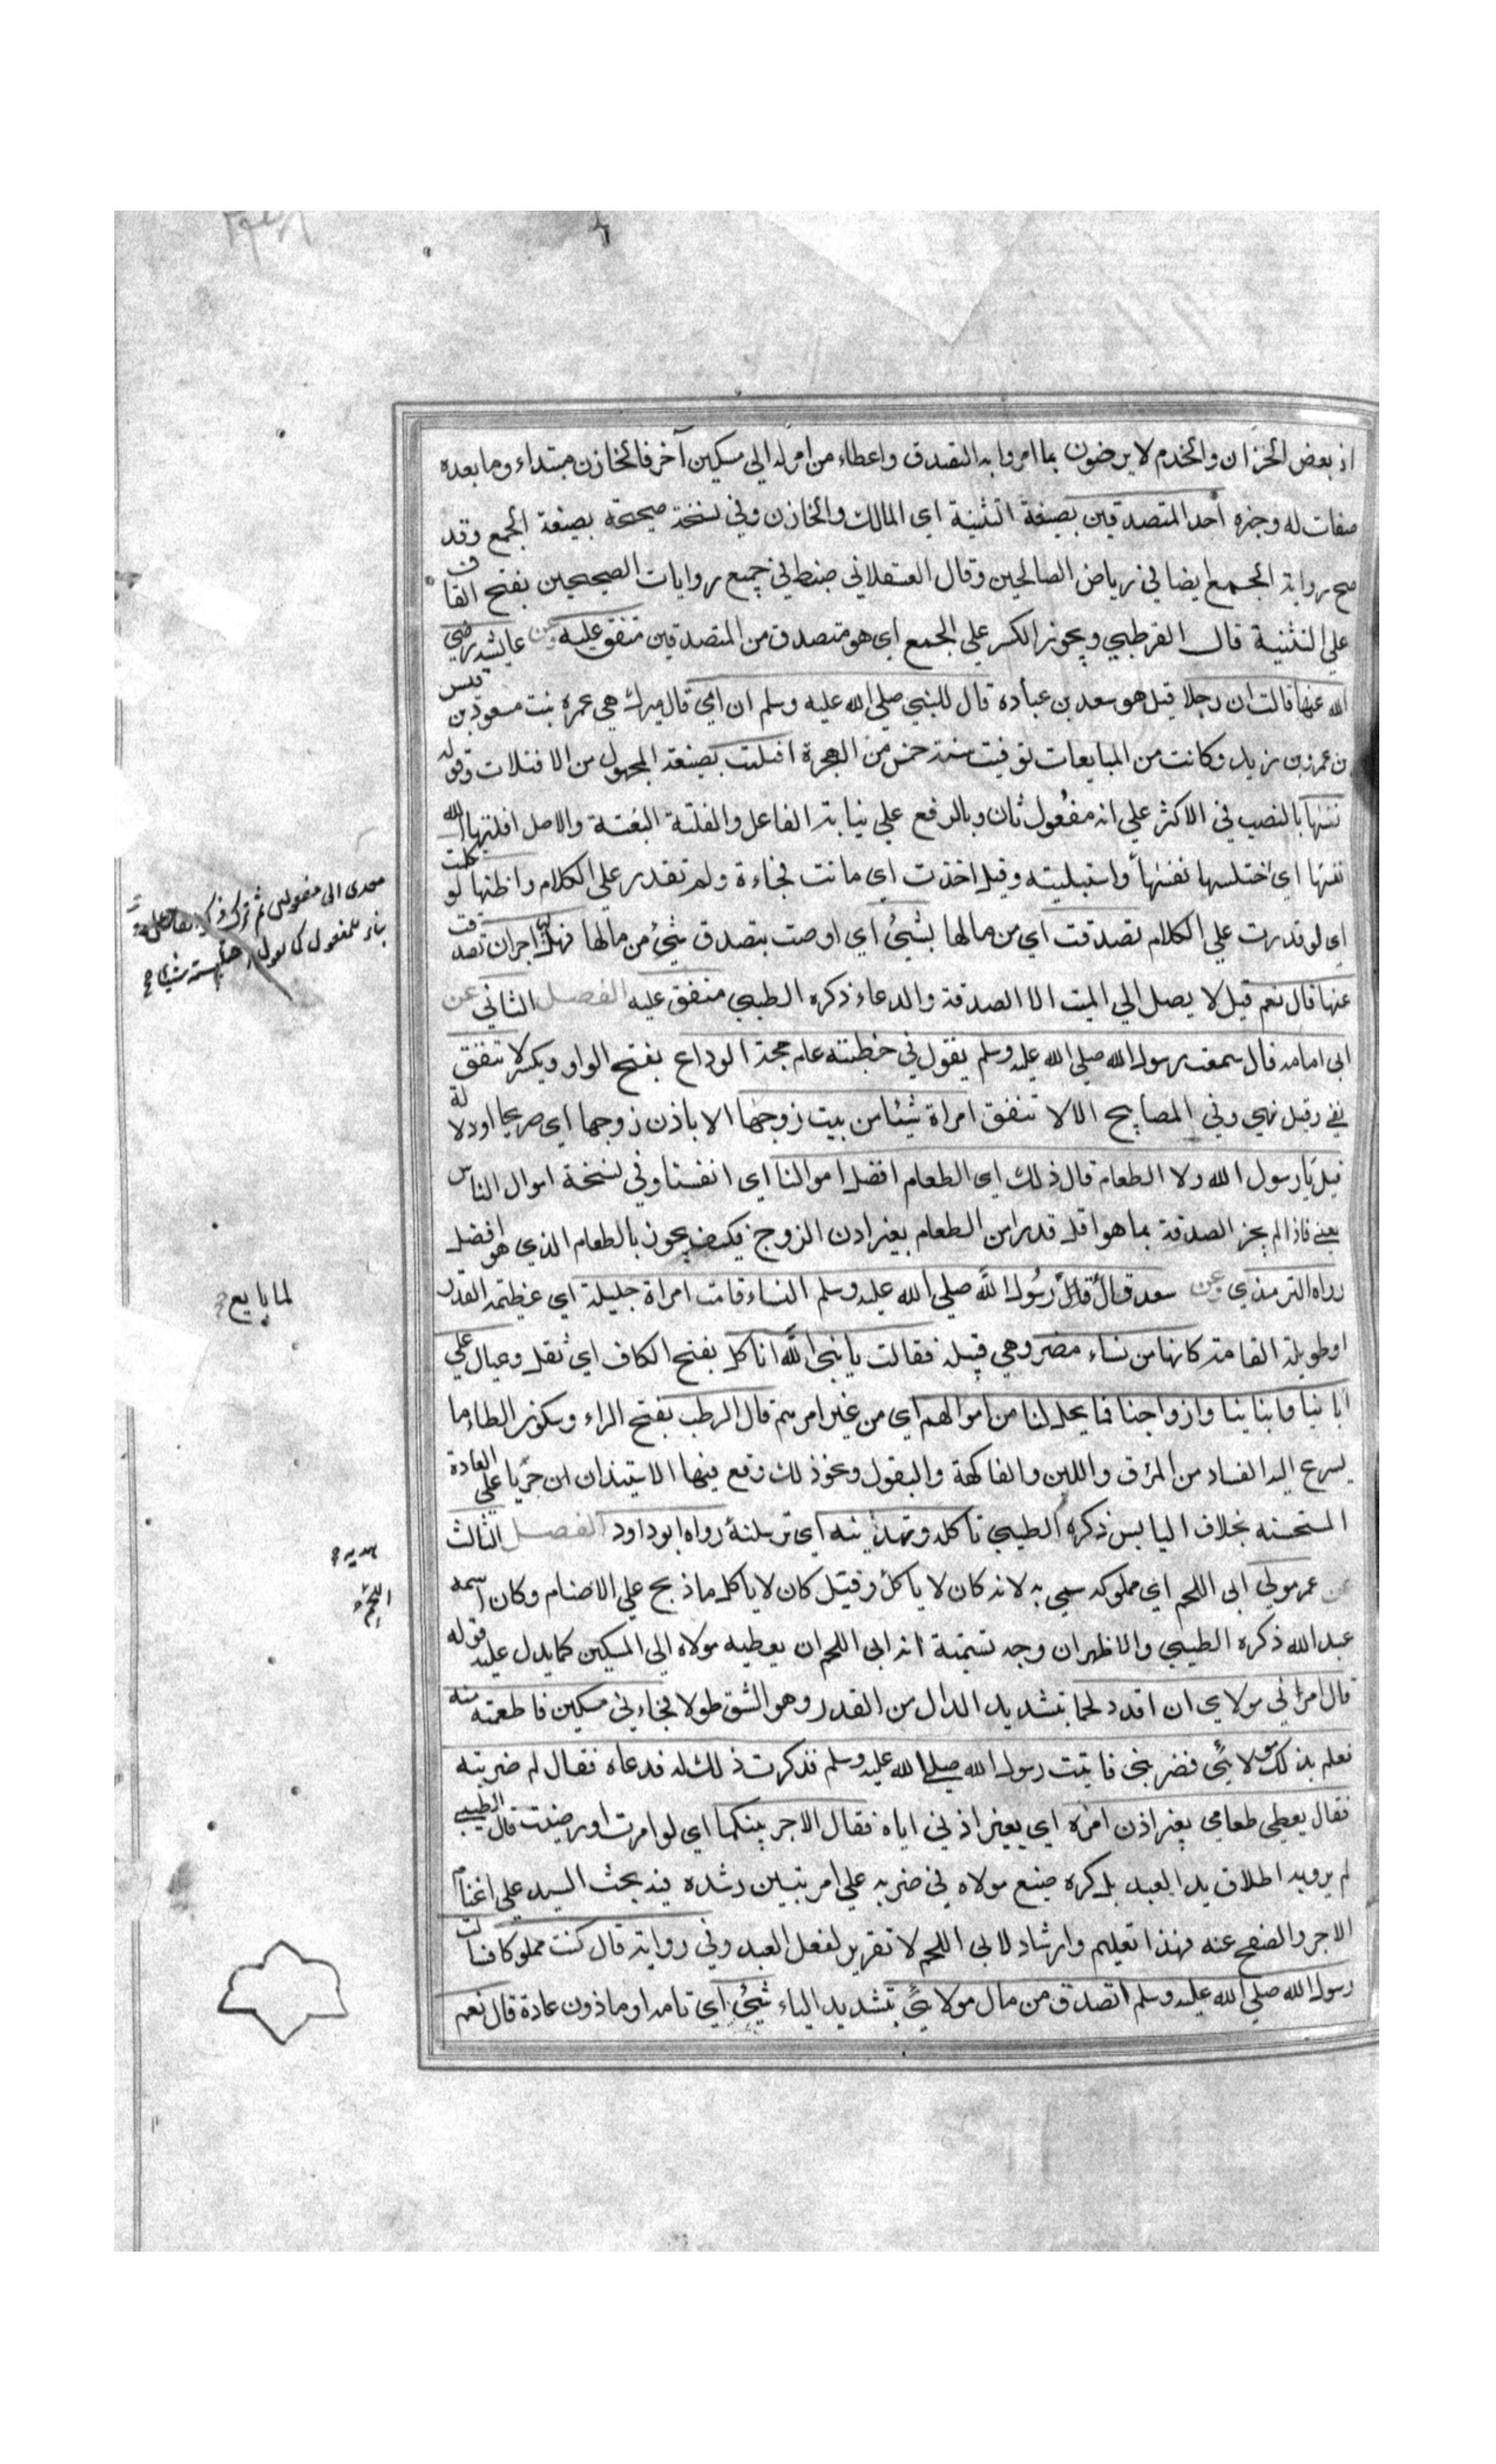 اذ بعض الخزان والخدم لا يرضون بما امروا به التصدق واعطاء من امر له الي مسكين آخر فالخازن مبتداء وما بعده
صفات له وخبره أحد المتصدقين بصيغة التثنية اي المالك والخازن وفي نسخة صحيحة بصيغة الجمع وقد
صح رواية الجمع ايضا في رياض الصالحين وقال العسقلاني ضبط في جميع روايات الصحيحين بفتح القاف
علي التثنية قال القرطبي ويجوز الكسر علي الجمع اي هو متصدق من المتصدقين متفق عليه وعن عايشه رضي
الله عنها قالت ان رجلا قيل هو سعد بن عباده قال للنبي صلي الله عليه وسلم ان امي قال ميرك هي عمرة بنت مسعود بن قيس
بن عمرو بن زيد وكانت من المبايعات توفيت سنة خمس من الهجرة افتلتت بصيغة المجهول من الافتلات وقوله
نفسها بالنصب في الاكثر علي انه مفعول ثان وبالرفع علي نيابة الفاعل والفلتة البغتة والاصل افلتها الله
نفسها اي اختلسها نفسها واستبليته وقيل اخذت اي ماتت فجاءة ولم تقدر علي الكلام واظنها لو تكلمت
اي لو قدرت علي الكلام تصدقت اي من مالها بشئ اي اوصت بتصدق شئ من مالها فهل لها اجر ان تصدقت
عنها قال نعم قيل لا يصل الي الميت الا الصدقة والدعاء ذكره الطيبي متفق عليه الفصل الثاني عن
ابي امامه قال سمعت رسول الله صلي الله عليه وسلم يقول في خطبته عام حجة الوداع بفتح الواو ويكسر لا تنفق
نفي وقيل نهي وفي المصابيح الا لا تنفق امراة شيئا من بيت زوجها الا باذن زوجها اي صريحا او دلالة
قيل يا رسول الله ولا الطعام قال ذلك اي الطعام افضل اموالنا اي انفسنا وفي نسخة اموال الناس
يعني فاذا لم يجز الصدقة بما هو اقل قدرا من الطعام بغير اذن الزوج فكيف يجوز بالطعام الذي هو افضل
رواه الترمذي وعن سعد قال قال رسول الله صلي الله عليه وسلم النساء قامت امراة جليلة اي عظيمة القدر
او طويلة القامة كانها من نساء مضر وهي قبيلة فقالت يا نبي الله انا كل بفتح الكاف اي ثقل وعيال علي
ابائنا وابنائنا وازواجنا فما يحل لنا من اموالهم اي من غير امرهم قال الرطب بفتح الراء وسكون الطاء ما
يسرع اليه الفساد من المرق واللبن والفاكهة والبقول ونحو ذلك وقع فيها الاستيذان ان جريا علي العادة
المستحسنه بخلاف اليابس ذكره الطيبي تاكله وتهدينه اي ترسلنه رواه ابو داود الفصل الثالث
عن عمر مولي ابي اللحم اي مملوكه سمي به لانه كان لا ياكل وقيل كان لا ياكل ما ذبح علي الاصنام وكان اسمه
عبد الله ذكره الطيبي والاظهر ان وجه تسميته انه ابي اللحم ان يعطيه مولاه الي المسكين كما يدل عليه قوله
قال امرني مولاي ان اقدد لحما بتشديد الدال من القدد وهو الشق طولا فجاءني مسكين فاطعمته منه
فعلم بذلك مولائي فضربني فاتيت رسول الله صلي الله عليه وسلم فذكرت ذلك له فدعاه فقال لم ضربته
فقال يعطي طعامي بغير اذن امره اي بغير اذني اياه فقال الاجر بينكما اي لو امرت او رضيت قال الطيبي
لم يرو به اطلاق يد العبد بل كره صنع مولاه في ضربه علي امر تبين رشده فيه بحث السيد علي اغتنام
الاجر والصفح عنه فهذا تعليم وارشاد لابي اللحم لا تقرير لفعل العبد وفي رواية قال كنت مملوكا فسالت
رسول الله صلي الله عليه وسلم اتصدق من مال مولائي بتشديد الياء شئ اي تامه او ماذون عادة قال نعم
لما بايع